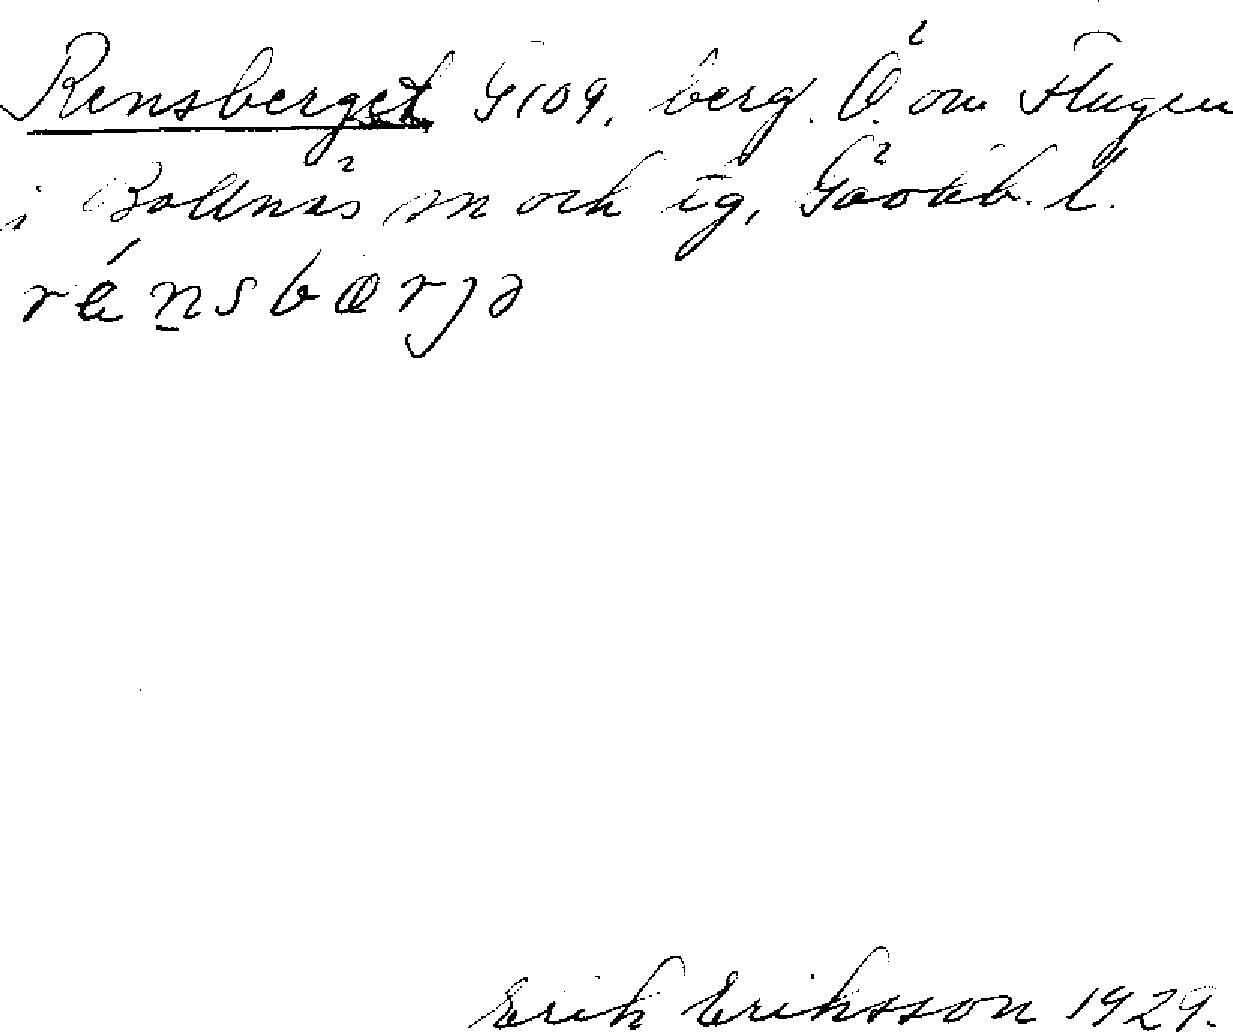 Rensberget G109, berg. Ö. om Flugen
i Bollnäs sn och tg, Gävleb. l.
rénsbærjə
Erik Eriksson 1929.